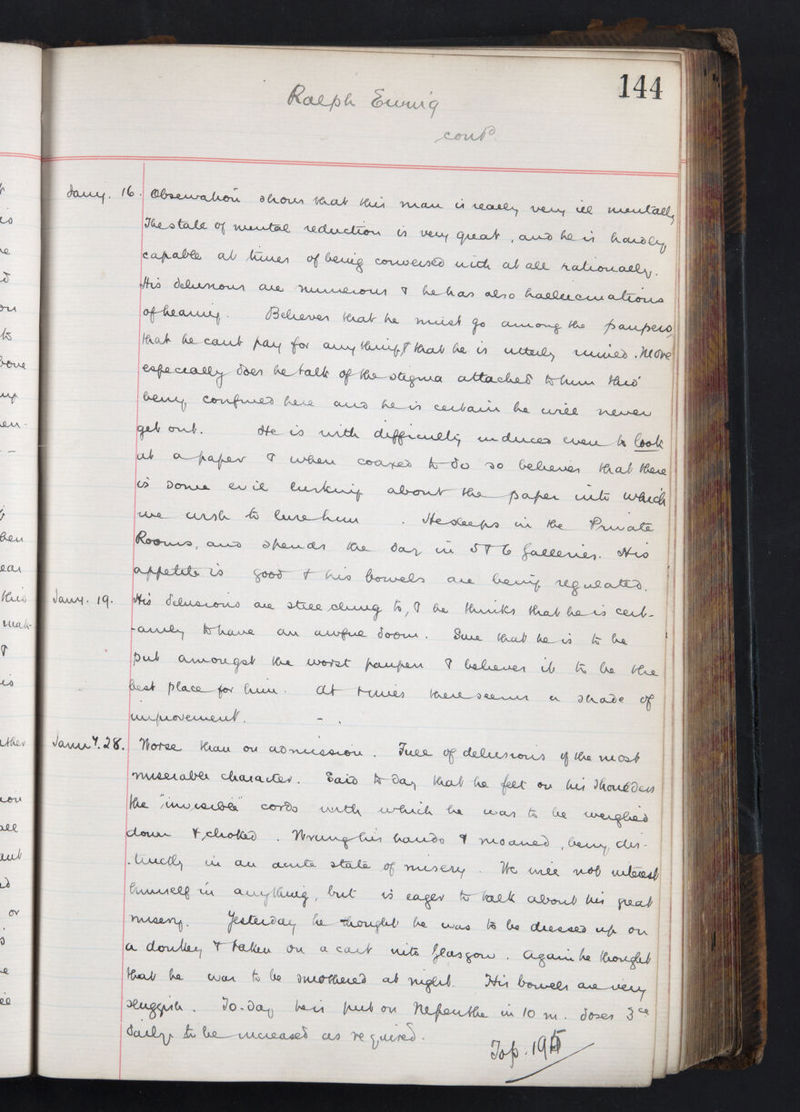 144
Ralph Ewing
contd.
Jany. 16. Observation shows that this man is really very ill mentally
The state of mental reduction is very great, and he is hardly
capable at times of being conversed with at all rationally.
His delusions are numerous & he has also hallucinations
of hearing. Believes that he must go among the paupers,
that he cant pay for anything & that he is utterly ruined. More
especially does he talk of the stigma attached to him thro'
being confined here and he is certain he will never
get out. He is with difficulty induced even to look
at a paper & when coaxed to do so believes that there
is some evil lurking about the paper into which
we wish to lure him. He sleeps in the Private
Rooms, and spends the day in 5 & 6 Galleries. His
appetite is good & his bowels are being regulated.
Jany. 19. His delusions are still clung to, & he thinks that he is cert-
-ainly to have an awful doom. Sure that he is to be
put amongst the worst paupers & believes it to be the
best place for him. At times there seems a shade of
improvement.
Jany. 28. Worse than on admission. Full of delusions of the most
miserable character. Said to day that he felt on his shoulders
the "invisible" cords with which he was to be weighed
down & choked. Wrung his hands & moaned, being dis-
-tinctly in an acute state of misery. He will not interest
himself in anything, but is eager to talk about his great
misery. Yesterday he thought he was to be dressed up on
a donkey & taken on a cart into Glasgow. Again he thought
that he was to be smothered at night. His bowels are very
sluggish. To-day he is put on Nepenthe in 10 m. doses 3ce
daily to be increased as required.
To p. 195